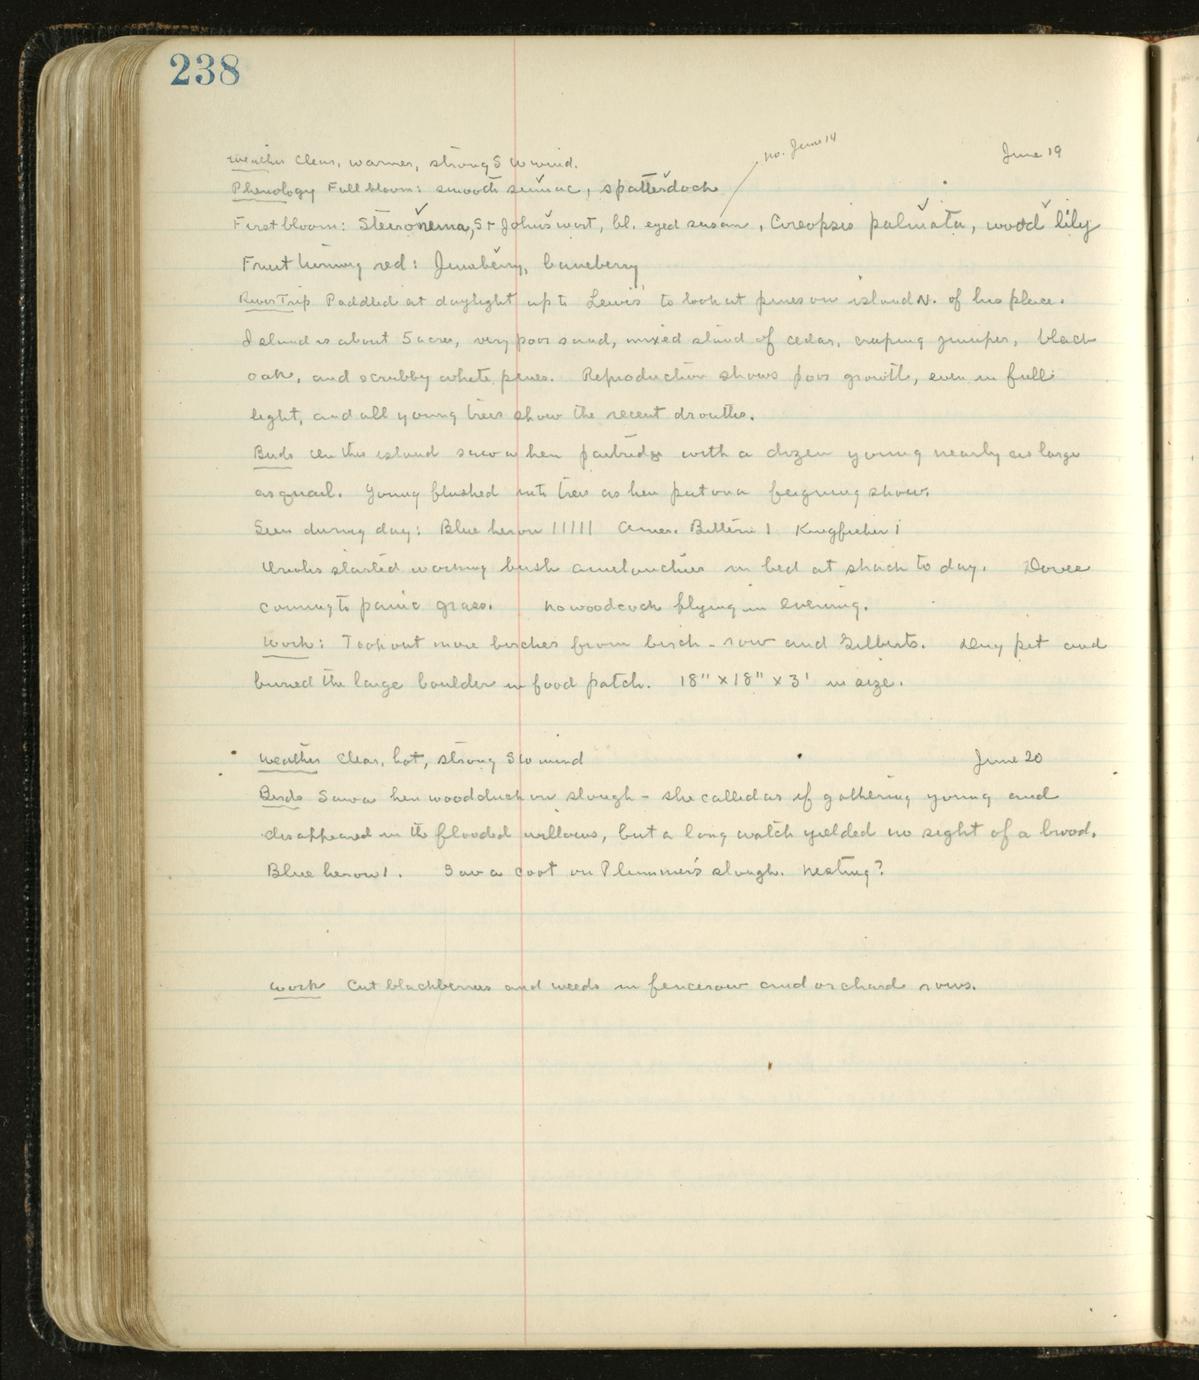 238
no. June 14
Weather Clear, warmer, strong SW wind. June 19
Phenology Full bloom: smooth sumac, spatterdock
First bloom: Steironema, St Johnswort, bl. eyed susan, Coreopsis palmata, wood lily
Fruit turning red: Juneberry, baneberry
River Trip Paddled at daylight up to Lewis' to look at pines on island N. of his place.
Island is about 5 acres, very poor sand, mixed stand of cedar, creeping juniper, black
oak, and scrubby white pines. Reproduction shows poor growth, even in full
light, and all young trees show the recent drouths.
Birds On this island saw a hen partridge with a dozen young nearly as large
as quail. Young flushed into trees as hen put on a feigning show.
Seen during day: Blue heron 11111 Amer. Bittern 1 Kingfisher 1
Orioles started working bush amelanchier in bed at shack today. Doves
coming to panic grass. No woodcock flying in evening.
Work: Took out more birches from birch-row and Gilberts. Dug pit and
buried the large boulder in food patch. 18" x 18" x 3' in size.
Weather Clear, hot, strong SW wind June 20
Birds Saw a hen woodduck on slough - she called as if gathering young and
disappeared in the flooded willows, but a long watch yielded no sight of a brood.
Blue heron 1. Saw a coot on Plummer's slough. Nesting?
Work Cut blackberries and weeds in fencerow and orchard rows.